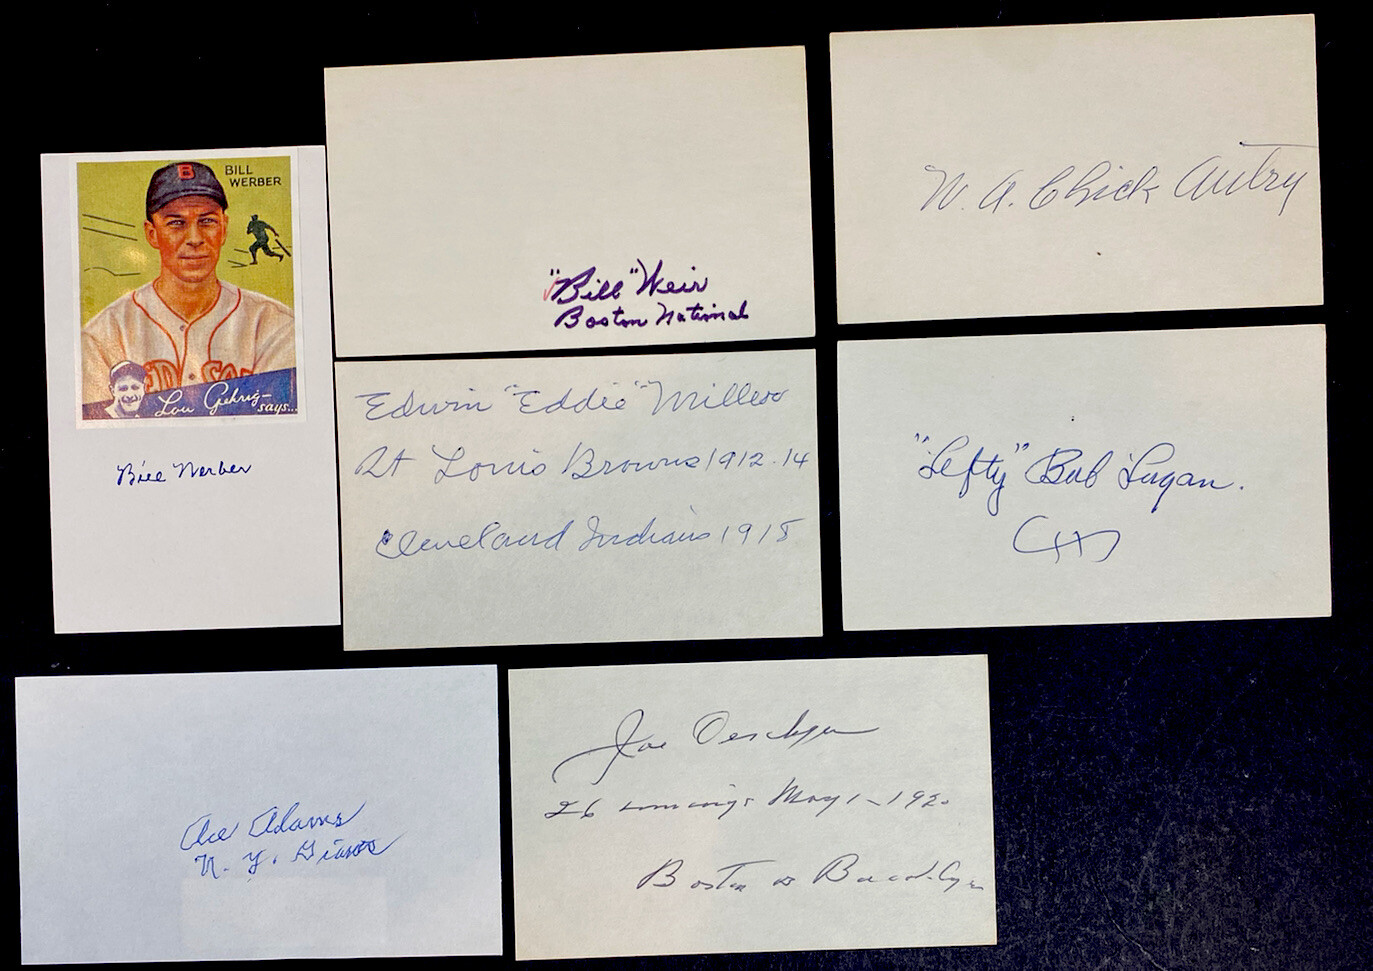 BILL
WERBER
B
ED SO
Lou Gehrig-
says...
Bill Werber
"Bill" Weir
Boston National
W. A. Chick Autry
Edwin "Eddie" Miller
St Louis Browns 1912-14
Cleveland Indians 1918
"Lefty" Bob Logan.
Ace Adams
N. Y. Giants
Joe Oeschger
26 innings May 1-1920
Boston vs Brooklyn